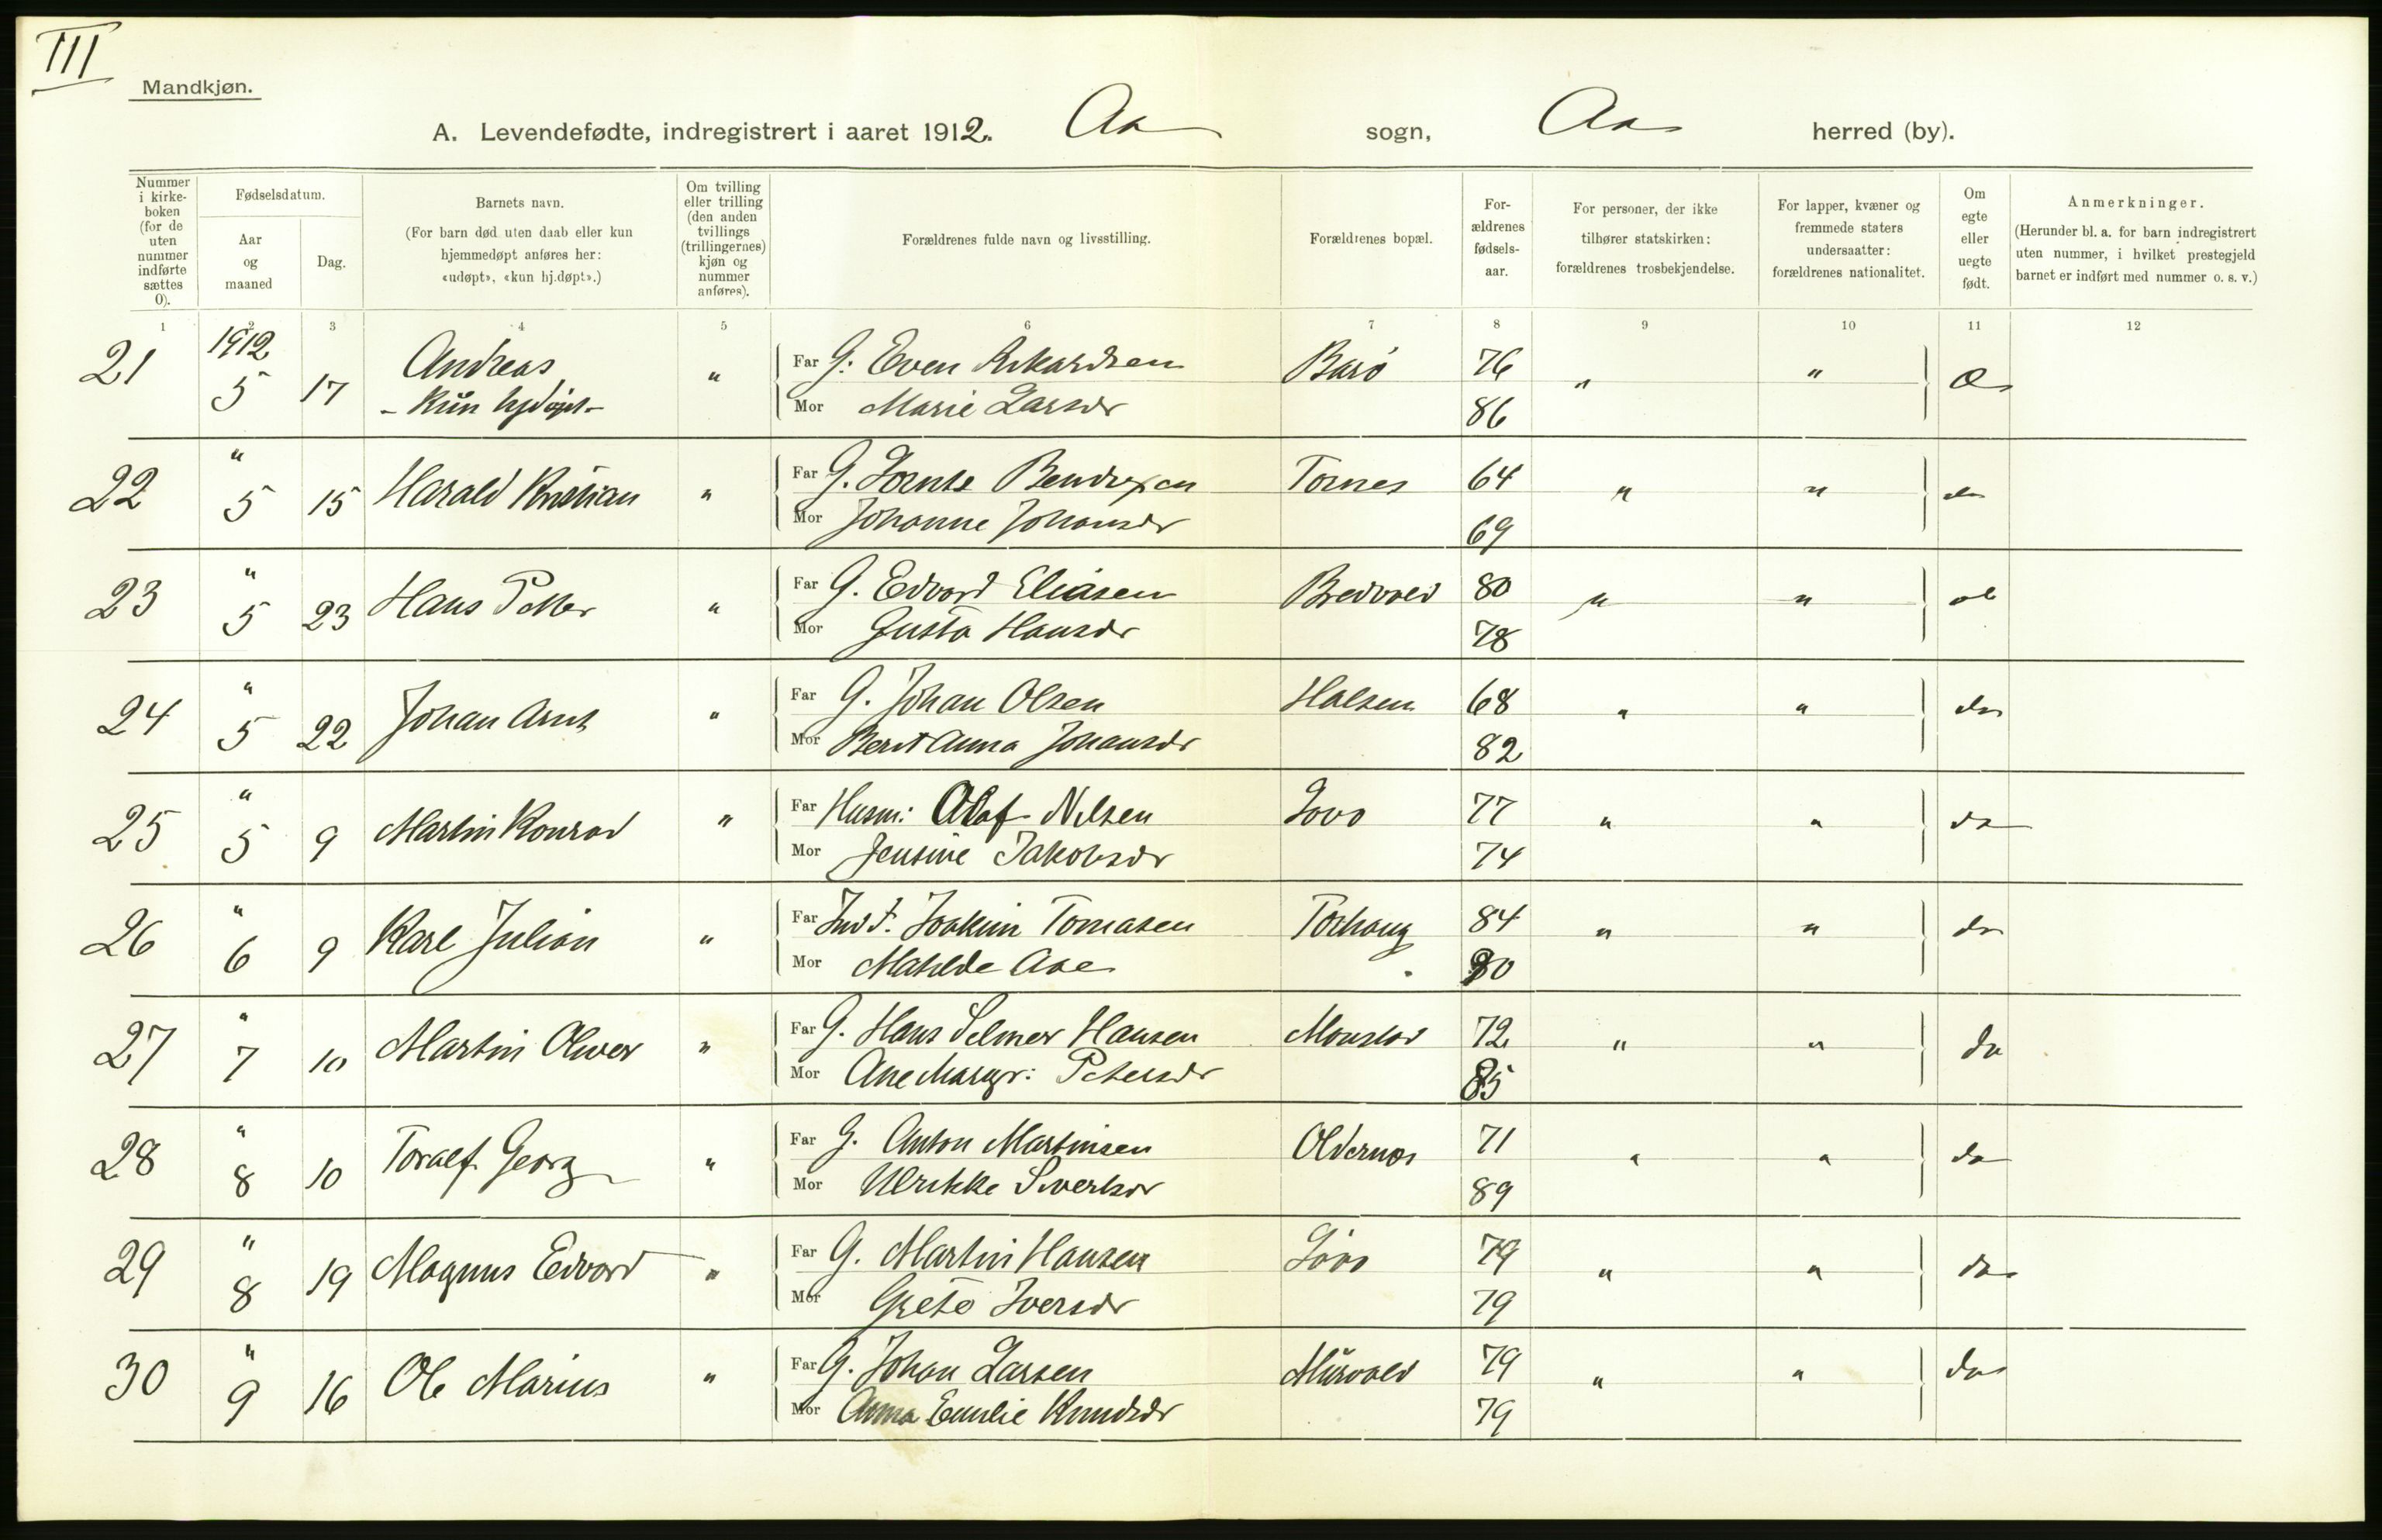 III
Mandkjøn.
A. Levendefødte, indregistrert i aaret 1912. Aa sogn, Aa herred (by).
Nummer i kirke-boken (for de uten nummer indførte sættes 0).
Fødselsdatum.
Aar og maaned
Dag.
Barnets navn.
(For barn død uten daab eller kun hjemmedøpt anføres her: «udøpt», «kun hj.døpt».)
Om tvilling eller trilling (den anden tvillings (trillingernes) kjøn og nummer anføres).
Forældrenes fulde navn og livsstilling.
Forældrenes bopæl.
For-ældrenes fødsels-aar.
For personer, der ikke tilhører statskirken: forældrenes trosbekjendelse.
For lapper, kvæner og fremmede staters undersaatter: forældrenes nationalitet.
Om egte eller uegte født.
Anmerkninger.
(Herunder bl. a. for barn indregistrert uten nummer, i hvilket prestegjeld barnet er indført med nummer o. s. v.)
1 2 3 4 5 6 7 8 9 10 11 12
21 1912 5 17 Andreas - Kun hjdøpt - " Far G: Even Rikardsen 76 " "
Mor Marie Larsdr 86
22 " 5 15 Harald Kristian " Far G. Lornts Tornes 64 " "
Mor Johanne Johansdr 69
23 " 5 23 Hans Petter " Far G. Edvard Eliasen Bredvold 80 " "
Mor Gusta Hansdr 78
24 " 5 22 Johan Arnt " Far G. Johan Olsen Halsen 68 " " do
Mor Berit Anna Johansdr 82
25 " 5 9 Martin Konrad " Far Husm: Olaf Nilsen 77 " " do
Mor Jensine Jakobsdr 74
26 " 6 9 Karl Julian " Far Ind t. Joakim Tomasen Torhaug 84 " " do
Mor Matilde Aae 90
27 " 7 10 Martin Oliver " Far G. Hans Selmer Hansen 72 " " do
Mor Ane Margr: Petersdr 85
28 " 8 10 Toralf Georg " Far G. Anton Martinsen Oldernes 71 " " do
Mor Ulrikke Sivertsdr 89
29 " 8 19 Magnus Edvard " Far G. Martin Hansen 79 " " do
Mor Iversdr 79
30 " 9 16 Ole Marius " Far G. Johan Larsen 79 " " do
Mor Anna Emilie Knudsdr 79